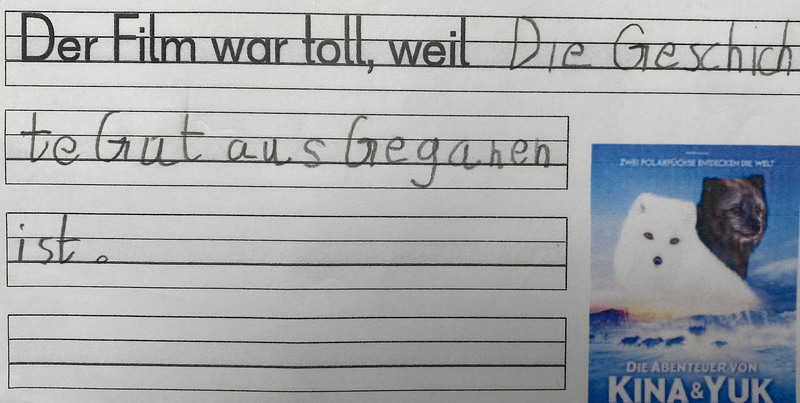 Der Film war toll, weil Die Geschich
te Gut aus Geganen
ist.
ZWEI POLARFÜCHSE ENTDECKEN DIE WELT
DIE ABENTEUER VON
KINA & YUK